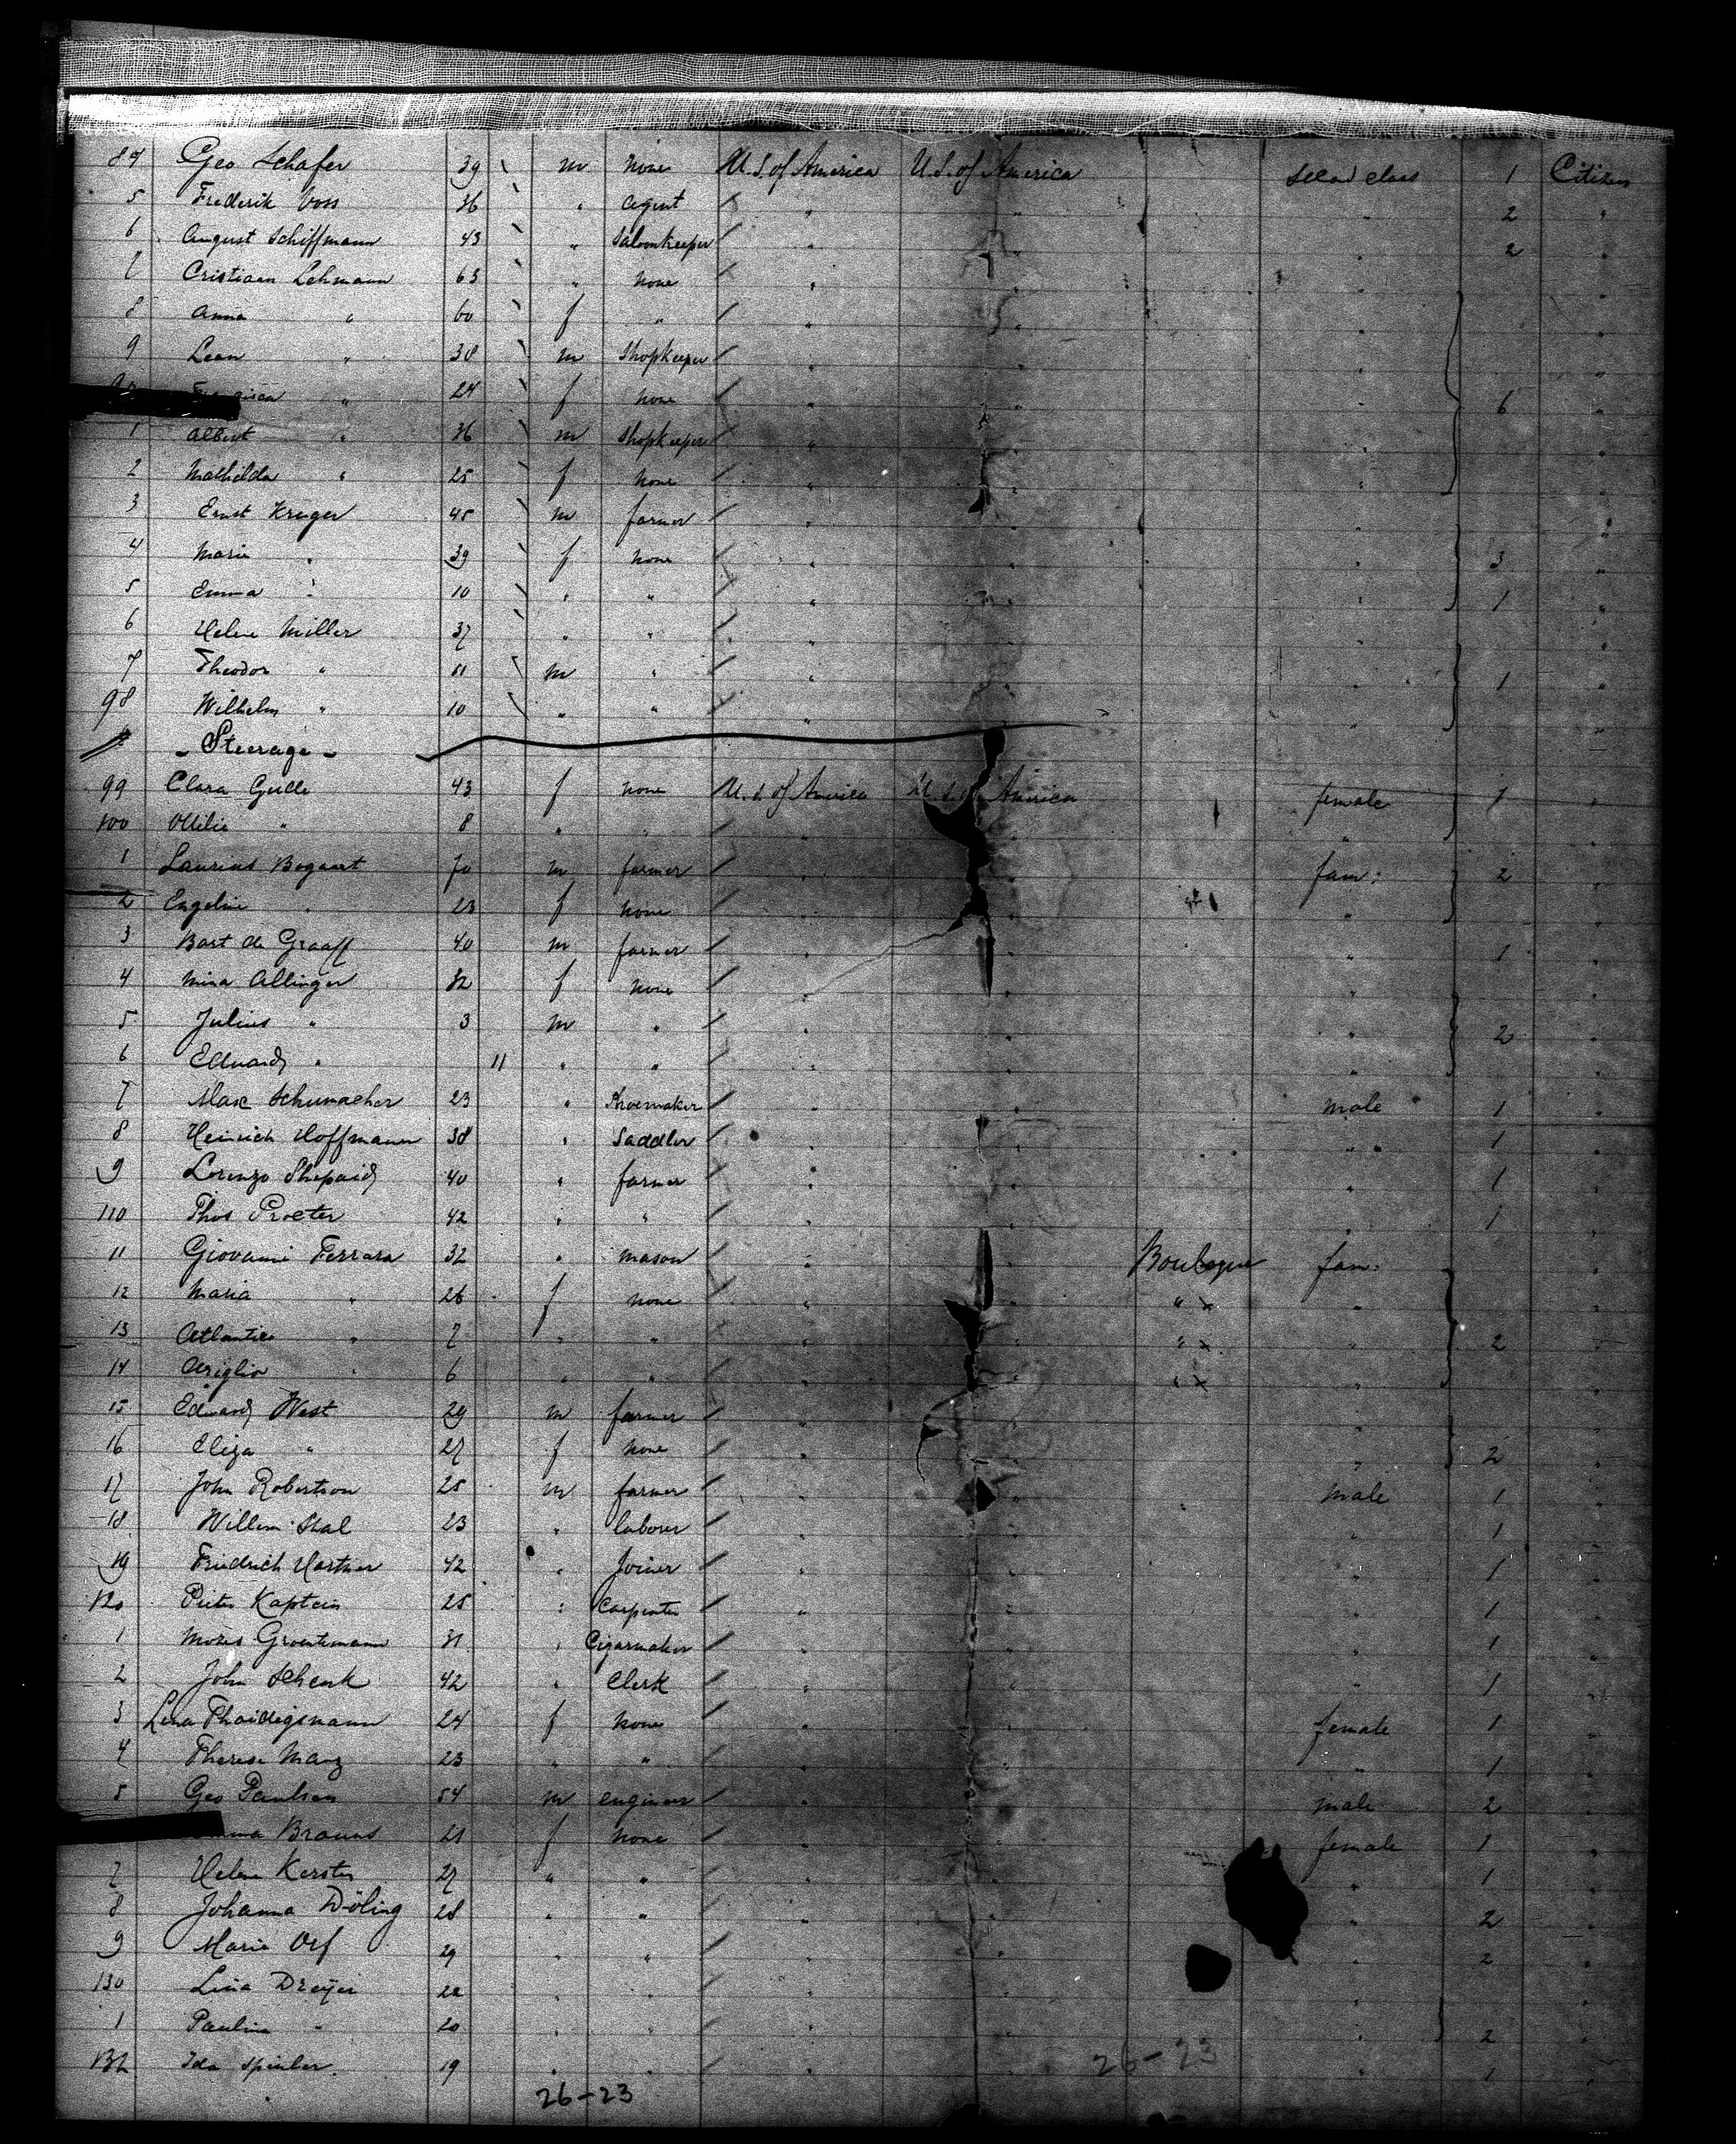 84 Geo Schafer 39 m none U.S. of America U.S. of America Second class 1 Citizen
5 Frederik Voss 36 " agent " " " 2 "
6 August Schiffmann 43 " Saloonkeeper " " " 2 "
7 Cristiaan Lehmann 63 " none " " " "
8 Anna " 60 f " " " " "
9 Leon " 38 m Shopkeeper " " " "
" 24 f none " " " 6 "
1 Albert " 36 m Shopkeeper " " " "
2 Mathilda " 25 f none " " " "
3 Ernst Kruger 45 m farmer " " " "
4 Marie " 39 f none " " " 3 "
5 Emma " 10 " " " " " 1 "
6 Helene Miller 37 " " " " "
7 Theodor " 11 m " " " " 1 "
98 Wilhelm " 10 " " " " " "
- Steerage -
99 Clara 43 f none U.S. of America U.S. of America female 1 "
100 Ottilie " 8 " " " " " "
1 Laurins Bogaert 70 m farmer " " fam: 2 "
2 Engeline " 23 f none " " " "
3 Bart de Graaff 40 m farmer " " " 1 "
4 Mina Allinger 32 f none " " " "
5 Julius " 3 m " " " " 2 "
6 Edward " 11 " " " " " "
7 Max Schumacher 23 " Shoemaker " " male 1 "
8 Heinrich Hoffmann 38 " Saddler " " " 1 "
9 Lorenzo Shepaid 40 " farmer " " " 1 "
110 Thos Procter 42 " " " " " 1 "
11 Giovanni Ferrara 32 " mason " " Boulogne fam: "
12 Maria " 26 f none " " " x " "
13 Atlantico " 7 " " " " " x " 2 "
14 " 6 " " " " " x " "
15 Edward West 29 m farmer " " " "
16 Eliza " 27 f none " " " 2 "
17 John Robertson 25 m farmer " " male 1 "
18 Willem Stal 23 " laborer " " " 1 "
19 Friedrich Hartner 42 " Joiner " " " 1 "
120 Pieter Kaptein 25 " Carpenter " " " 1 "
1 Mozes Groenteman 31 " Cigarmaker " " " 1 "
2 John Schenk 42 " Clerk " " " 1 "
3 Lena Thaidegsmann 24 f none " " female 1 "
4 Therese Marz 23 " " " " " 1 "
5 Geo Paulsen 54 m engineer " " male 2 "
Brauns 21 f none " " female 1 "
7 Helene Kersten 27 " " " " " 1 "
8 Johanna Döling 28 " " " " " 2 "
9 Marie Orf 29 " " " " " 2 "
130 Lina Dreyer 22 " " " " " "
1 Pauline " 20 " " " " " 2 "
132 Ida Spinler 19 " " " " " 1 "
26-23 26-23